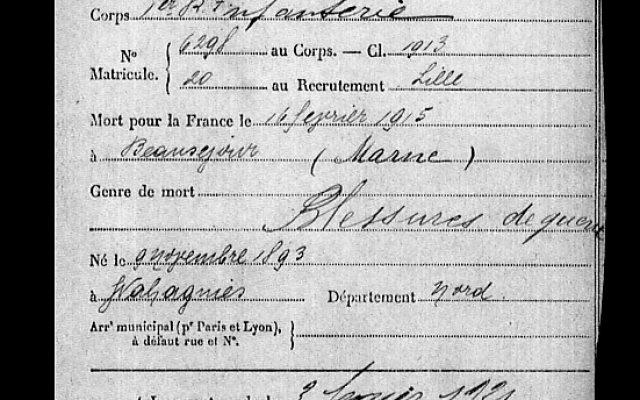 Corps 1er R. d'Infanterie
No Matricule. 6298 au Corps. — Cl. 1913
20 au Recrutement Lille
Mort pour la France le 16 février 1915
à Beauséjour (Marne)
Genre de mort
Blessures de guerre
Né le 9 novembre 1893
à Wahagnies Département Nord.
Arrt municipal (pr Paris et Lyon),
à défaut rue et No.